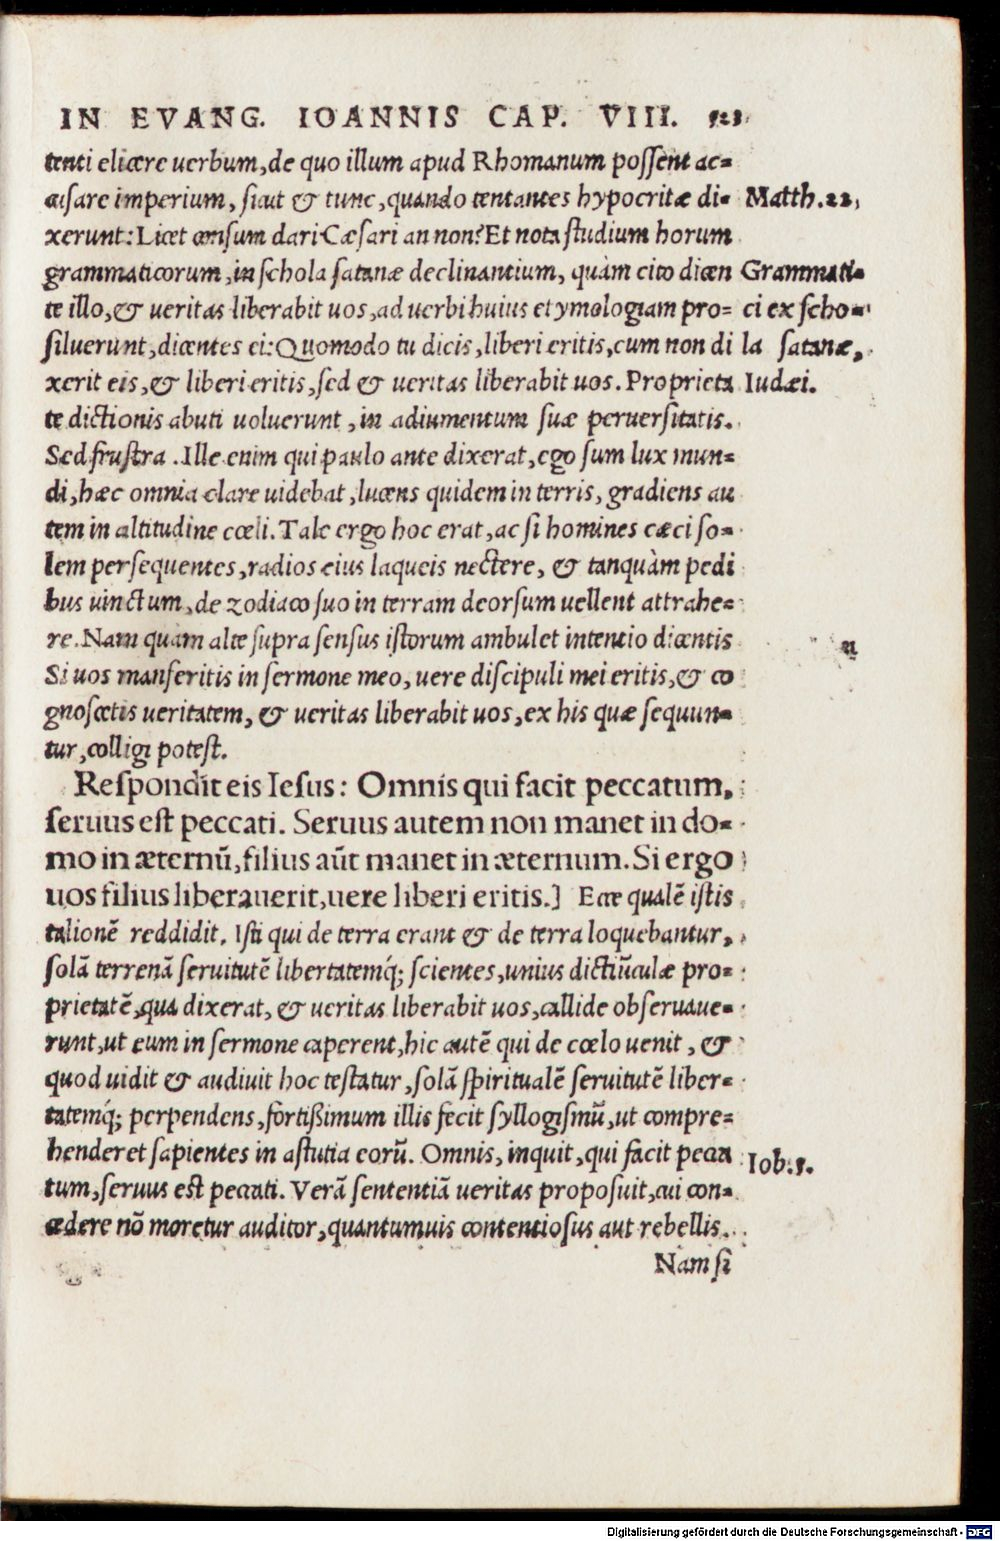 IN EVANG. IOANNIS CAP. VIII. 521
tenti elicere uerbum, de quo illum apud Rhomanum possent ac=
cusare imperium, sicut & tunc, quando tentantes hypocritæ di=
Matth.22,
xerunt: Licet censum dari Cæsari an non? Et nota studium horum
grammaticorum, in schola satanæ declinantium, quàm cito dicen
Grammati=
te illo, & ueritas liberabit uos, ad uerbi huius etymologiam pro=
ci ex scho=
siluerunt, dicentes ei: Quomodo tu dicis, liberi eritis, cum non di
la satanæ,
xerit eis, & liberi eritis, sed & ueritas liberabit uos. Proprieta
Iudæi.
te dictionis abuti uoluerunt, in adiumentum suæ peruersitatis.
Sed frustra. Ille enim qui paulo ante dixerat, ego sum lux mun=
di, hæc omnia clare uidebat, lucens quidem in terris, gradiens au
tem in altitudine cœli. Tale ergo hoc erat, ac si homines cæci so=
lem persequentes, radios eius laqueis nectere, & tanquàm pedi
bus uinctum, de zodiaco suo in terram deorsum uellent attrahe=
re. Nam quàm alte supra sensus istorum ambulet intentio dicentis
Si uos manseritis in sermone meo, uere discipuli mei eritis, & co
gnoscetis ueritatem, & ueritas liberabit uos, ex his quæ sequun=
tur, colligi potest.
Respondit eis Iesus: Omnis qui facit peccatum,
seruus est peccati. Seruus autem non manet in do=
mo in æternū, filius aūt manet in æternum. Si ergo
uos filius liberauerit, uere liberi eritis.] Ecce qualē istis
talionē reddidit. Isti qui de terra erant & de terra loquebantur,
solā terrenā seruitutē libertatemq́; scientes, unius dictiūculæ pro=
prietatē, qua dixerat, & ueritas liberabit uos, callide obseruaue=
runt, ut eum in sermone caperent, hic autē qui de cœlo uenit, &
quod uidit & audiuit hoc testatur, solā spiritualē seruitutē liber=
tatemq́; perpendens, fortißimum illis fecit syllogismū, ut compre=
henderet sapientes in astutia eorū. Omnis, inquit, qui facit pecca
Iob.5.
tum, seruus est peccati. Verā sententiā ueritas proposuit, cui con=
cedere nō moretur auditor, quantumuis contentiosus aut rebellis.
Nam si
Digitalisierung gefördert durch die Deutsche Forschungsgemeinschaft - DFG